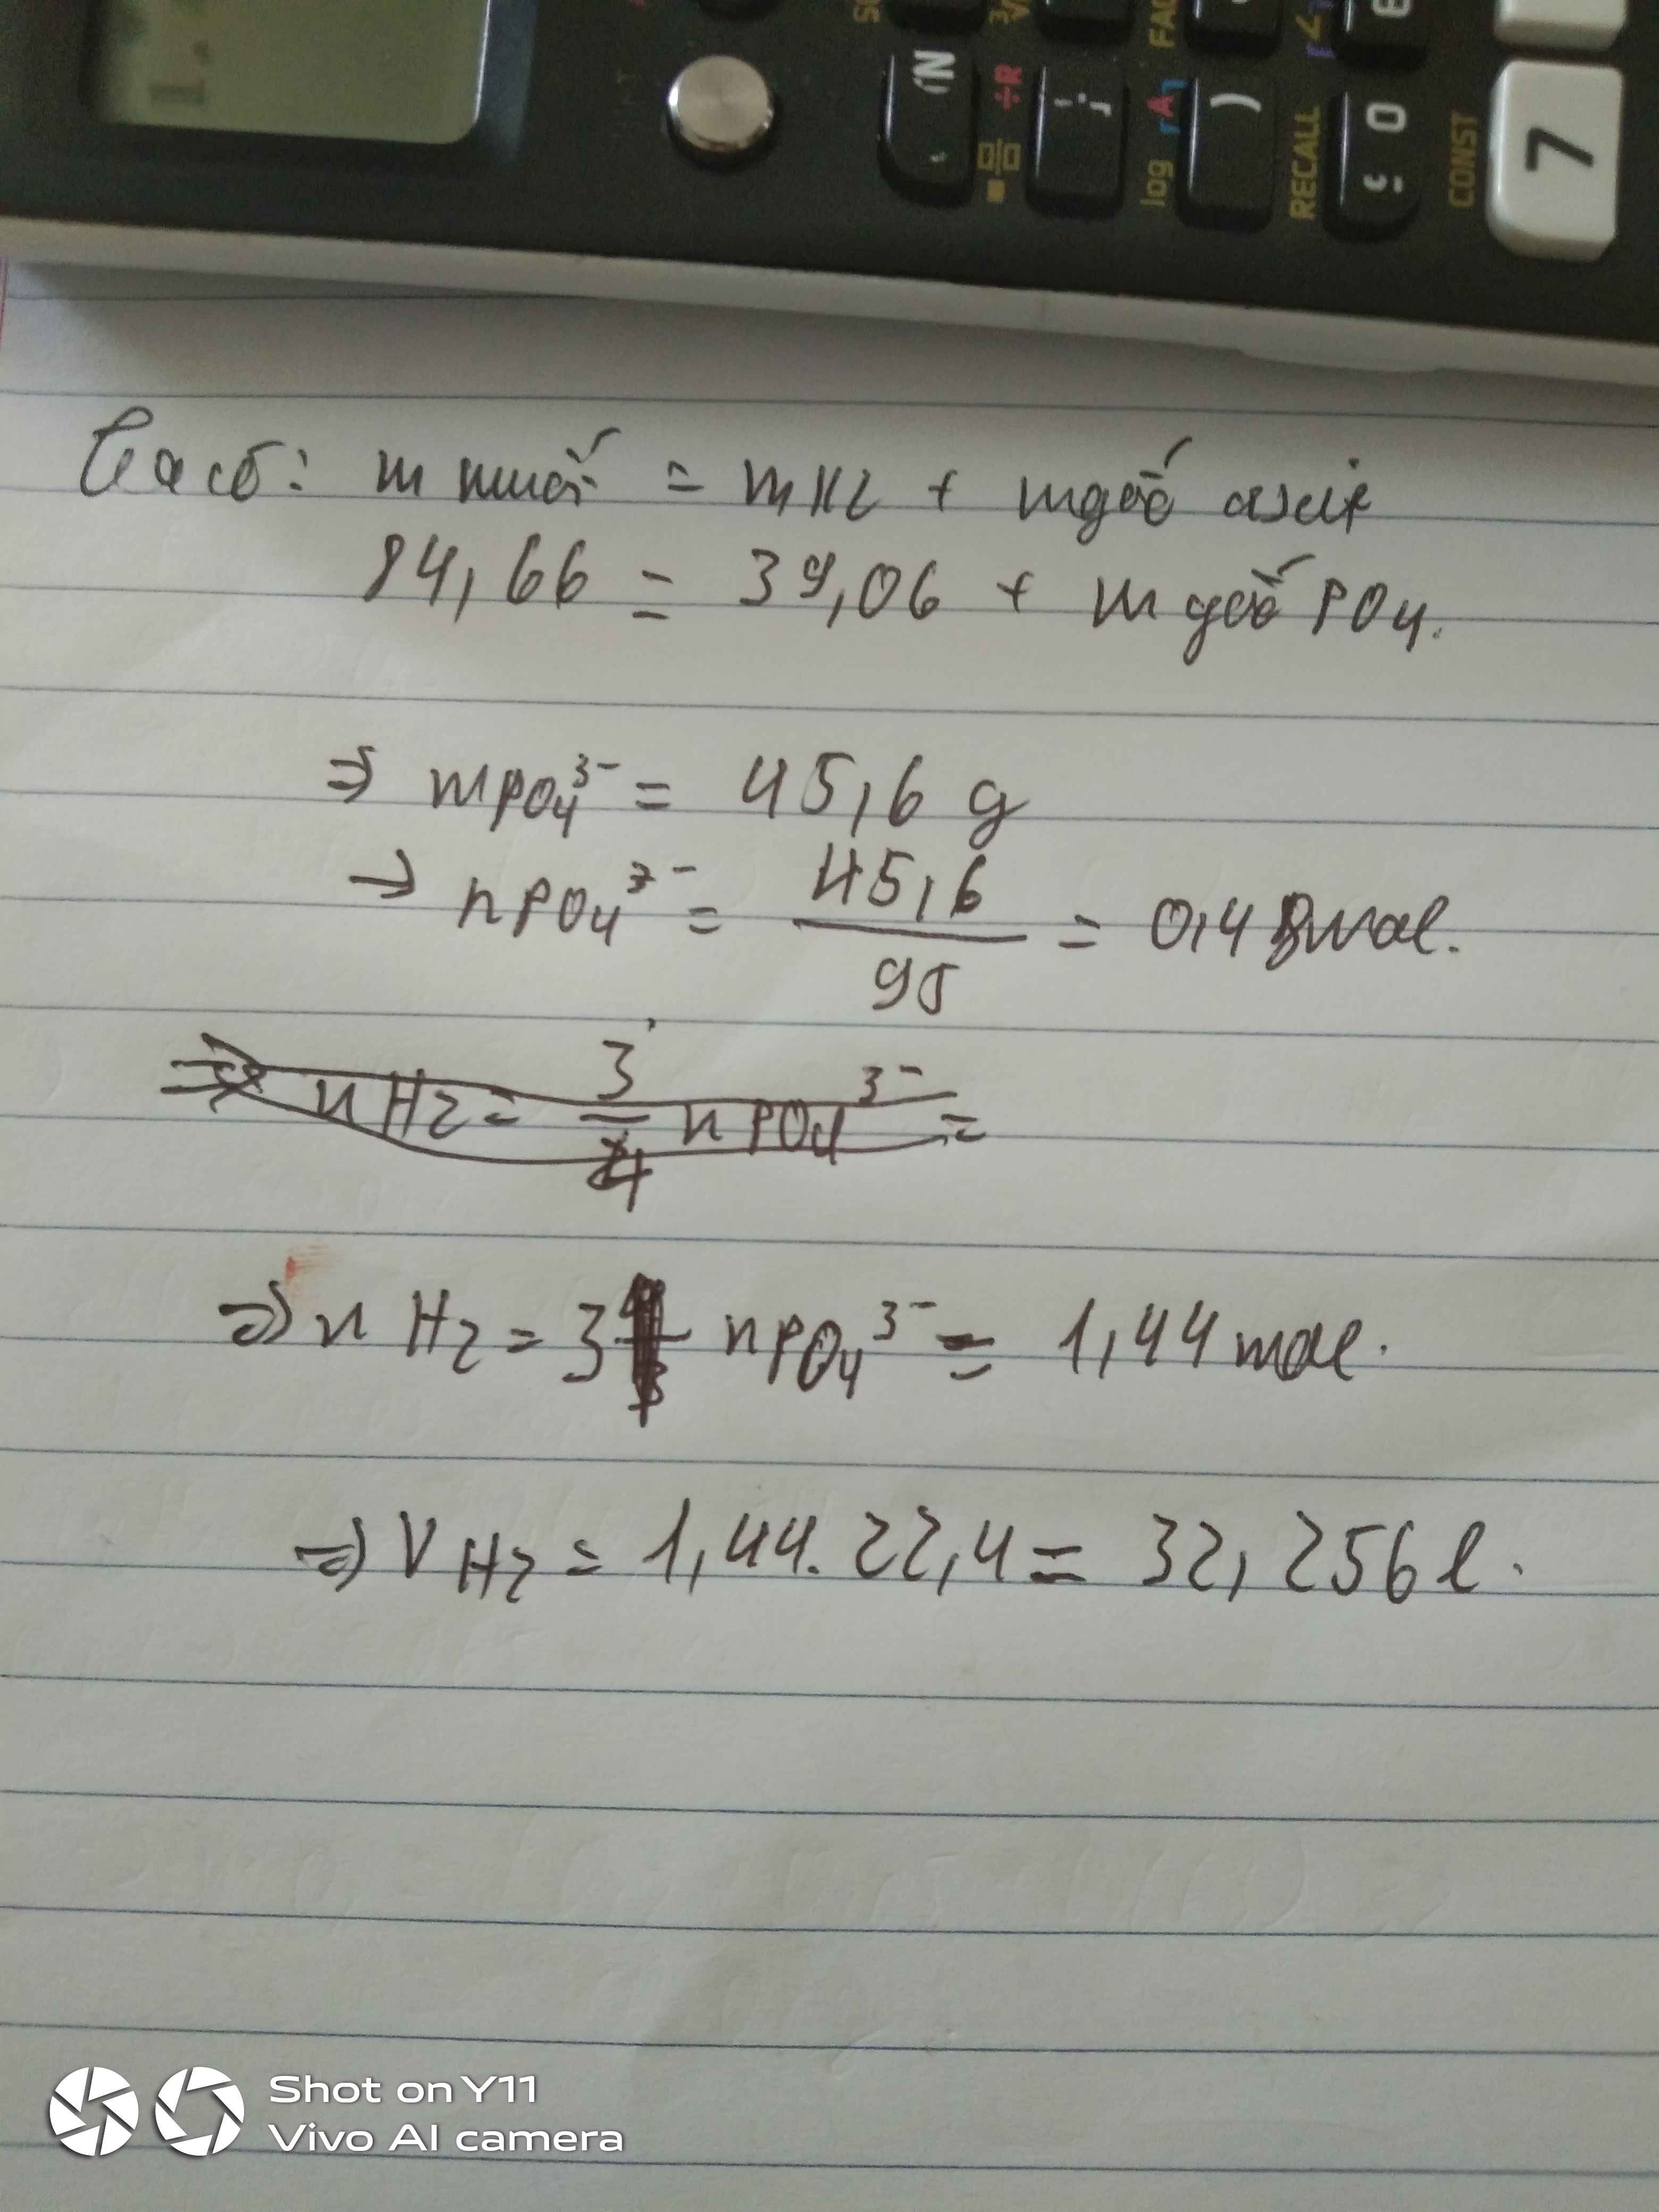 7
0
CONST
RECALL
)
log
÷R
(N
FAC
Ta có: m muối = mKL + mgốc axit
84,66 = 39,06 + m gốc PO4.
⇒ mPO4³⁻ = 45,6 g
→ nPO4³⁻ = 45,6 / 95 = 0,48 mol.
⇒ nH2 = 3/4 nPO4³⁻ =
⇒ n H2 = 3 nPO4³⁻ = 1,44 mol.
⇒ V H2 = 1,44. 22,4 = 32,256 l.
Shot on Y11
Vivo AI camera